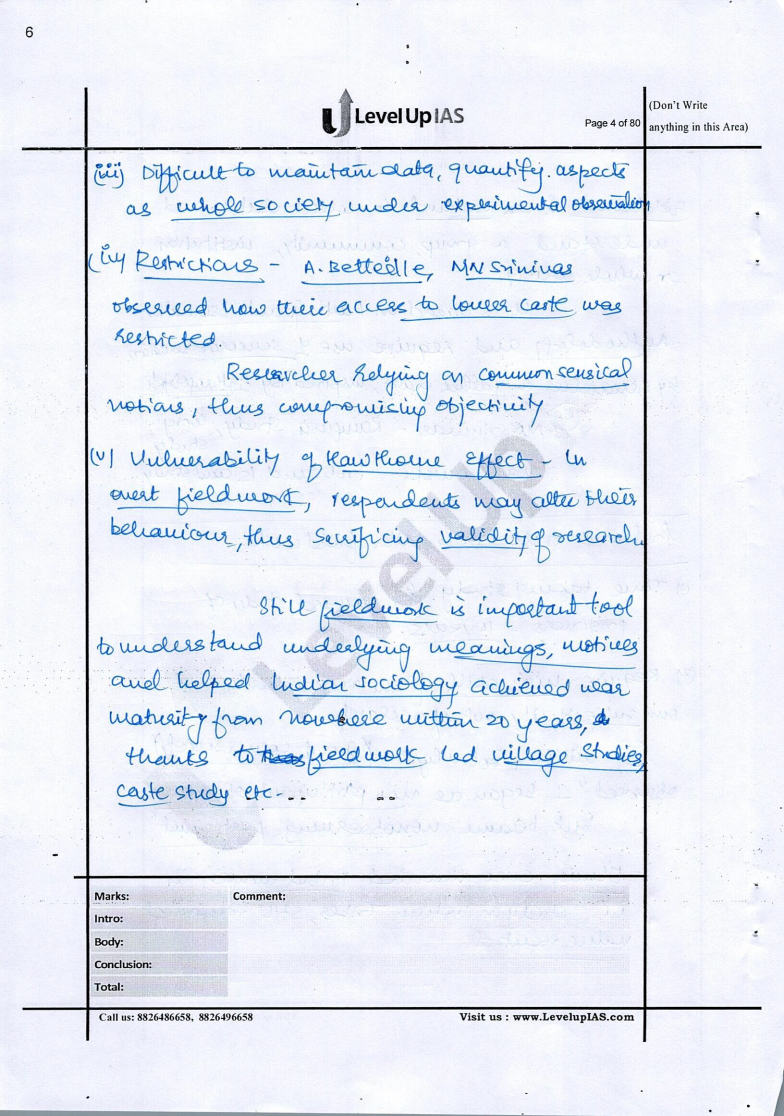 6
Level Up IAS
Page 4 of 80
(Don't Write
anything in this Area)
(iii) Difficult to maintain data, quantify aspects
as whole society under experimental observation
(iv) Restrictions - A. Betteille, MN Srinivas
observed how their access to lower caste was
restricted.
Researcher relying on commonsensical
notions, thus compromising objectivity
(v) Vulnerability of Hawthorne effect - In
overt fieldwork, respondents may alter their
behaviour, thus sacrificing validity of research.
Still fieldwork is important tool
to understand underlying meanings, motives
and helped Indian sociology achieved near
maturity from nowhere within 20 years,
thanks to fieldwork led village studies,
caste study etc -.. ..
Level Up
Marks:
Comment:
Intro:
Body:
Conclusion:
Total:
Call us: 8826486658, 8826496658
Visit us : www.LevelupIAS.com